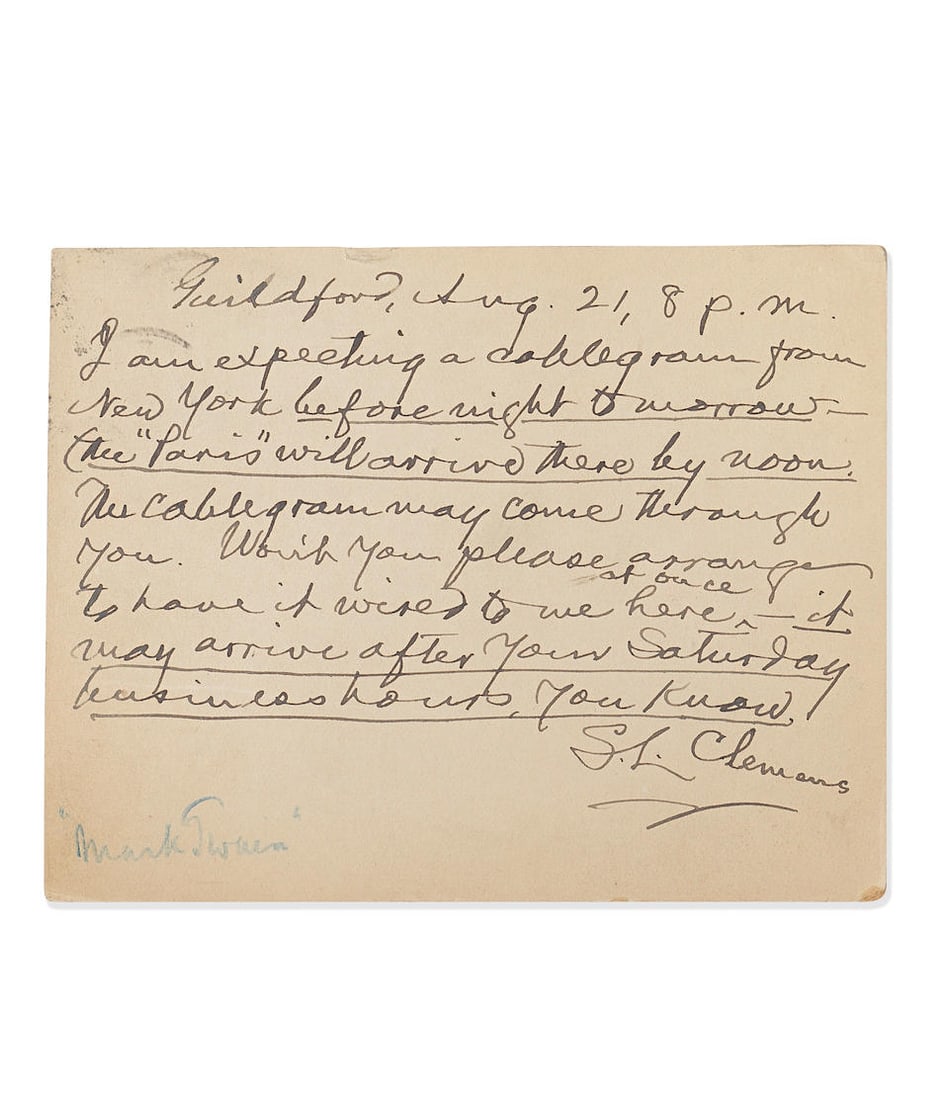 Guildford, Aug. 21, 8 p.m.
I am expecting a cablegram from
New York before night tomorrow—
(the "Paris" will arrive there by noon.
The cablegram may come through
you. Won't you please arrange
at once
to have it wired to me here,^ — it
may arrive after your Saturday
business hours, you know.
S. L. Clemens
"Mark Twain"